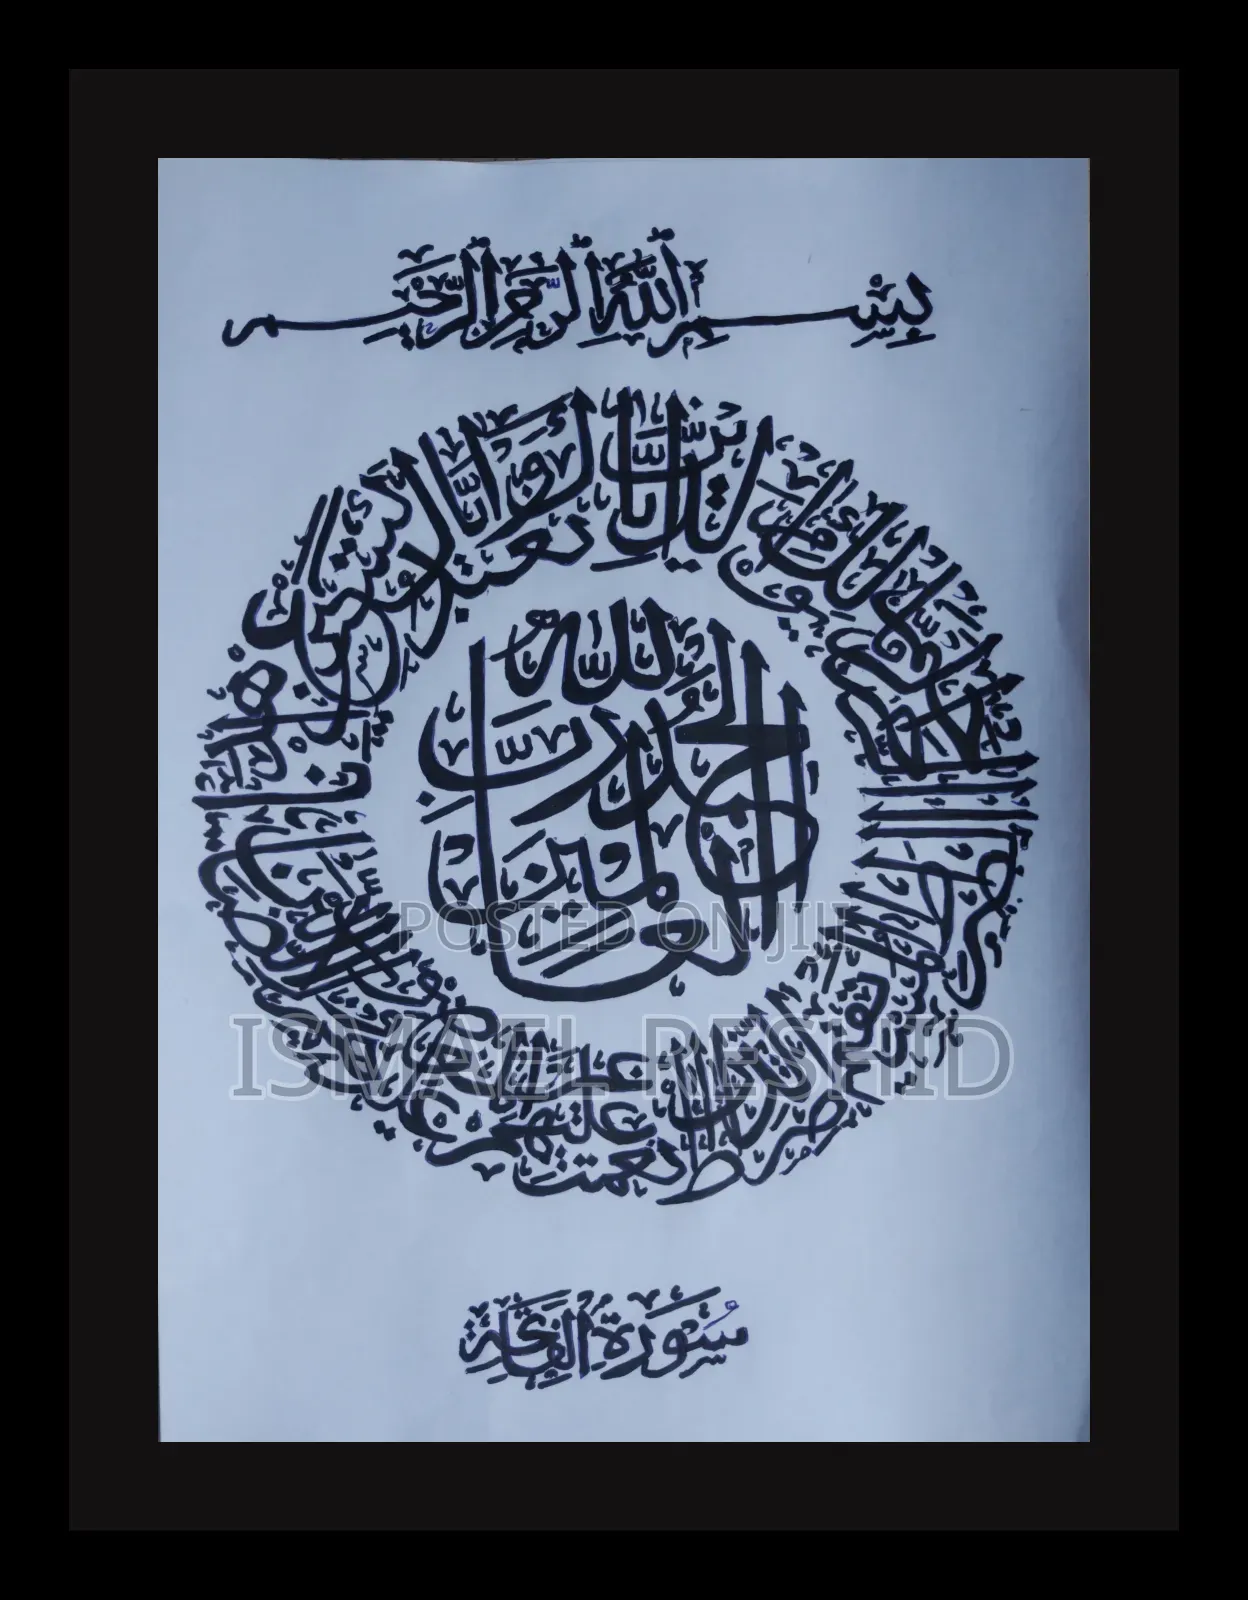 بِسْمِ اللَّهِ الرَّحْمَنِ الرَّحِيمِ
الْحَمْدُ لِلَّهِ رَبِّ الْعَالَمِينَ
الرَّحْمَنِ الرَّحِيمِ مَالِكِ يَوْمِ الدِّينِ إِيَّاكَ نَعْبُدُ وَإِيَّاكَ نَسْتَعِينُ اهْدِنَا الصِّرَاطَ الْمُسْتَقِيمَ صِرَاطَ الَّذِينَ أَنْعَمْتَ عَلَيْهِمْ غَيْرِ الْمَغْضُوبِ عَلَيْهِمْ وَلَا الضَّالِّينَ
POSTED ON JIJI
ISMAEL RESHID
سُورَةُ الْفَاتِحَةِ